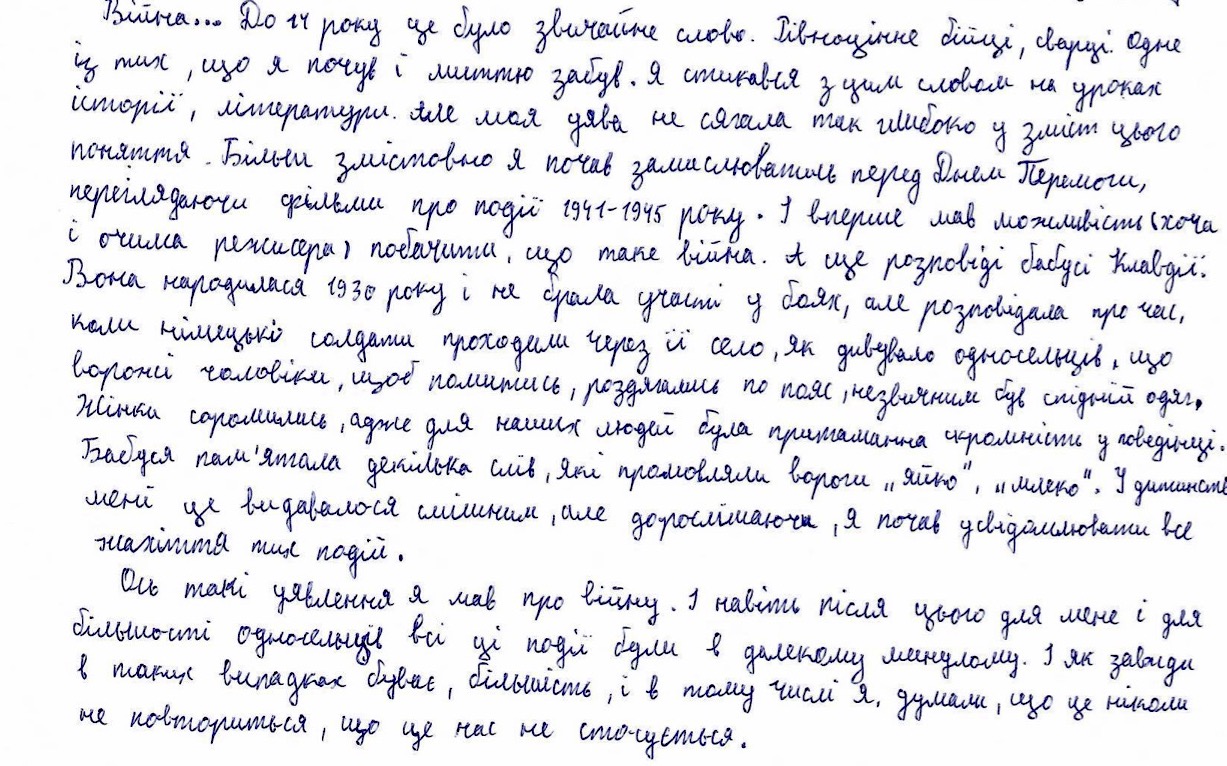 Війна... До 14 року це було звичайне слово. Рівноцінне бійці, сварці. Одне
із тих, що я почув і миттю забув. Я стикався з цим словом на уроках
історії, літератури. Але моя уява не сягала так глибоко у зміст цього
поняття. Більш змістовно я почав замислюватись перед Днем Перемоги,
переглядаючи фільми про події 1941-1945 року. І вперше мав можливість (хоча
і очима режисера) побачити, що таке війна. А ще розповіді бабусі Клавдії.
Вона народилася 1930 року і не брала участі у боях, але розповідала про час,
коли німецькі солдати проходили через її село, як дивувало односельців, що
ворожі чоловіки, щоб помитись, роздягались по пояс, незвичним був спідній одяг.
Жінки соромились, адже для наших людей була притаманна скромність у поведінці.
Бабуся пам'ятала декілька слів, які промовляли вороги „яйко", „млеко". У дитинстві
мені це видавалося смішним, але дорослішаючи, я почав усвідомлювати все
жахіття тих подій.
Ось такі уявлення я мав про війну. І навіть після цього для мене і для
більшості односельців всі ці події були в далекому минулому. І як завжди
в таких випадках буває, більшість, і в тому числі я, думали, що це ніколи
не повториться, що це нас не стосується.